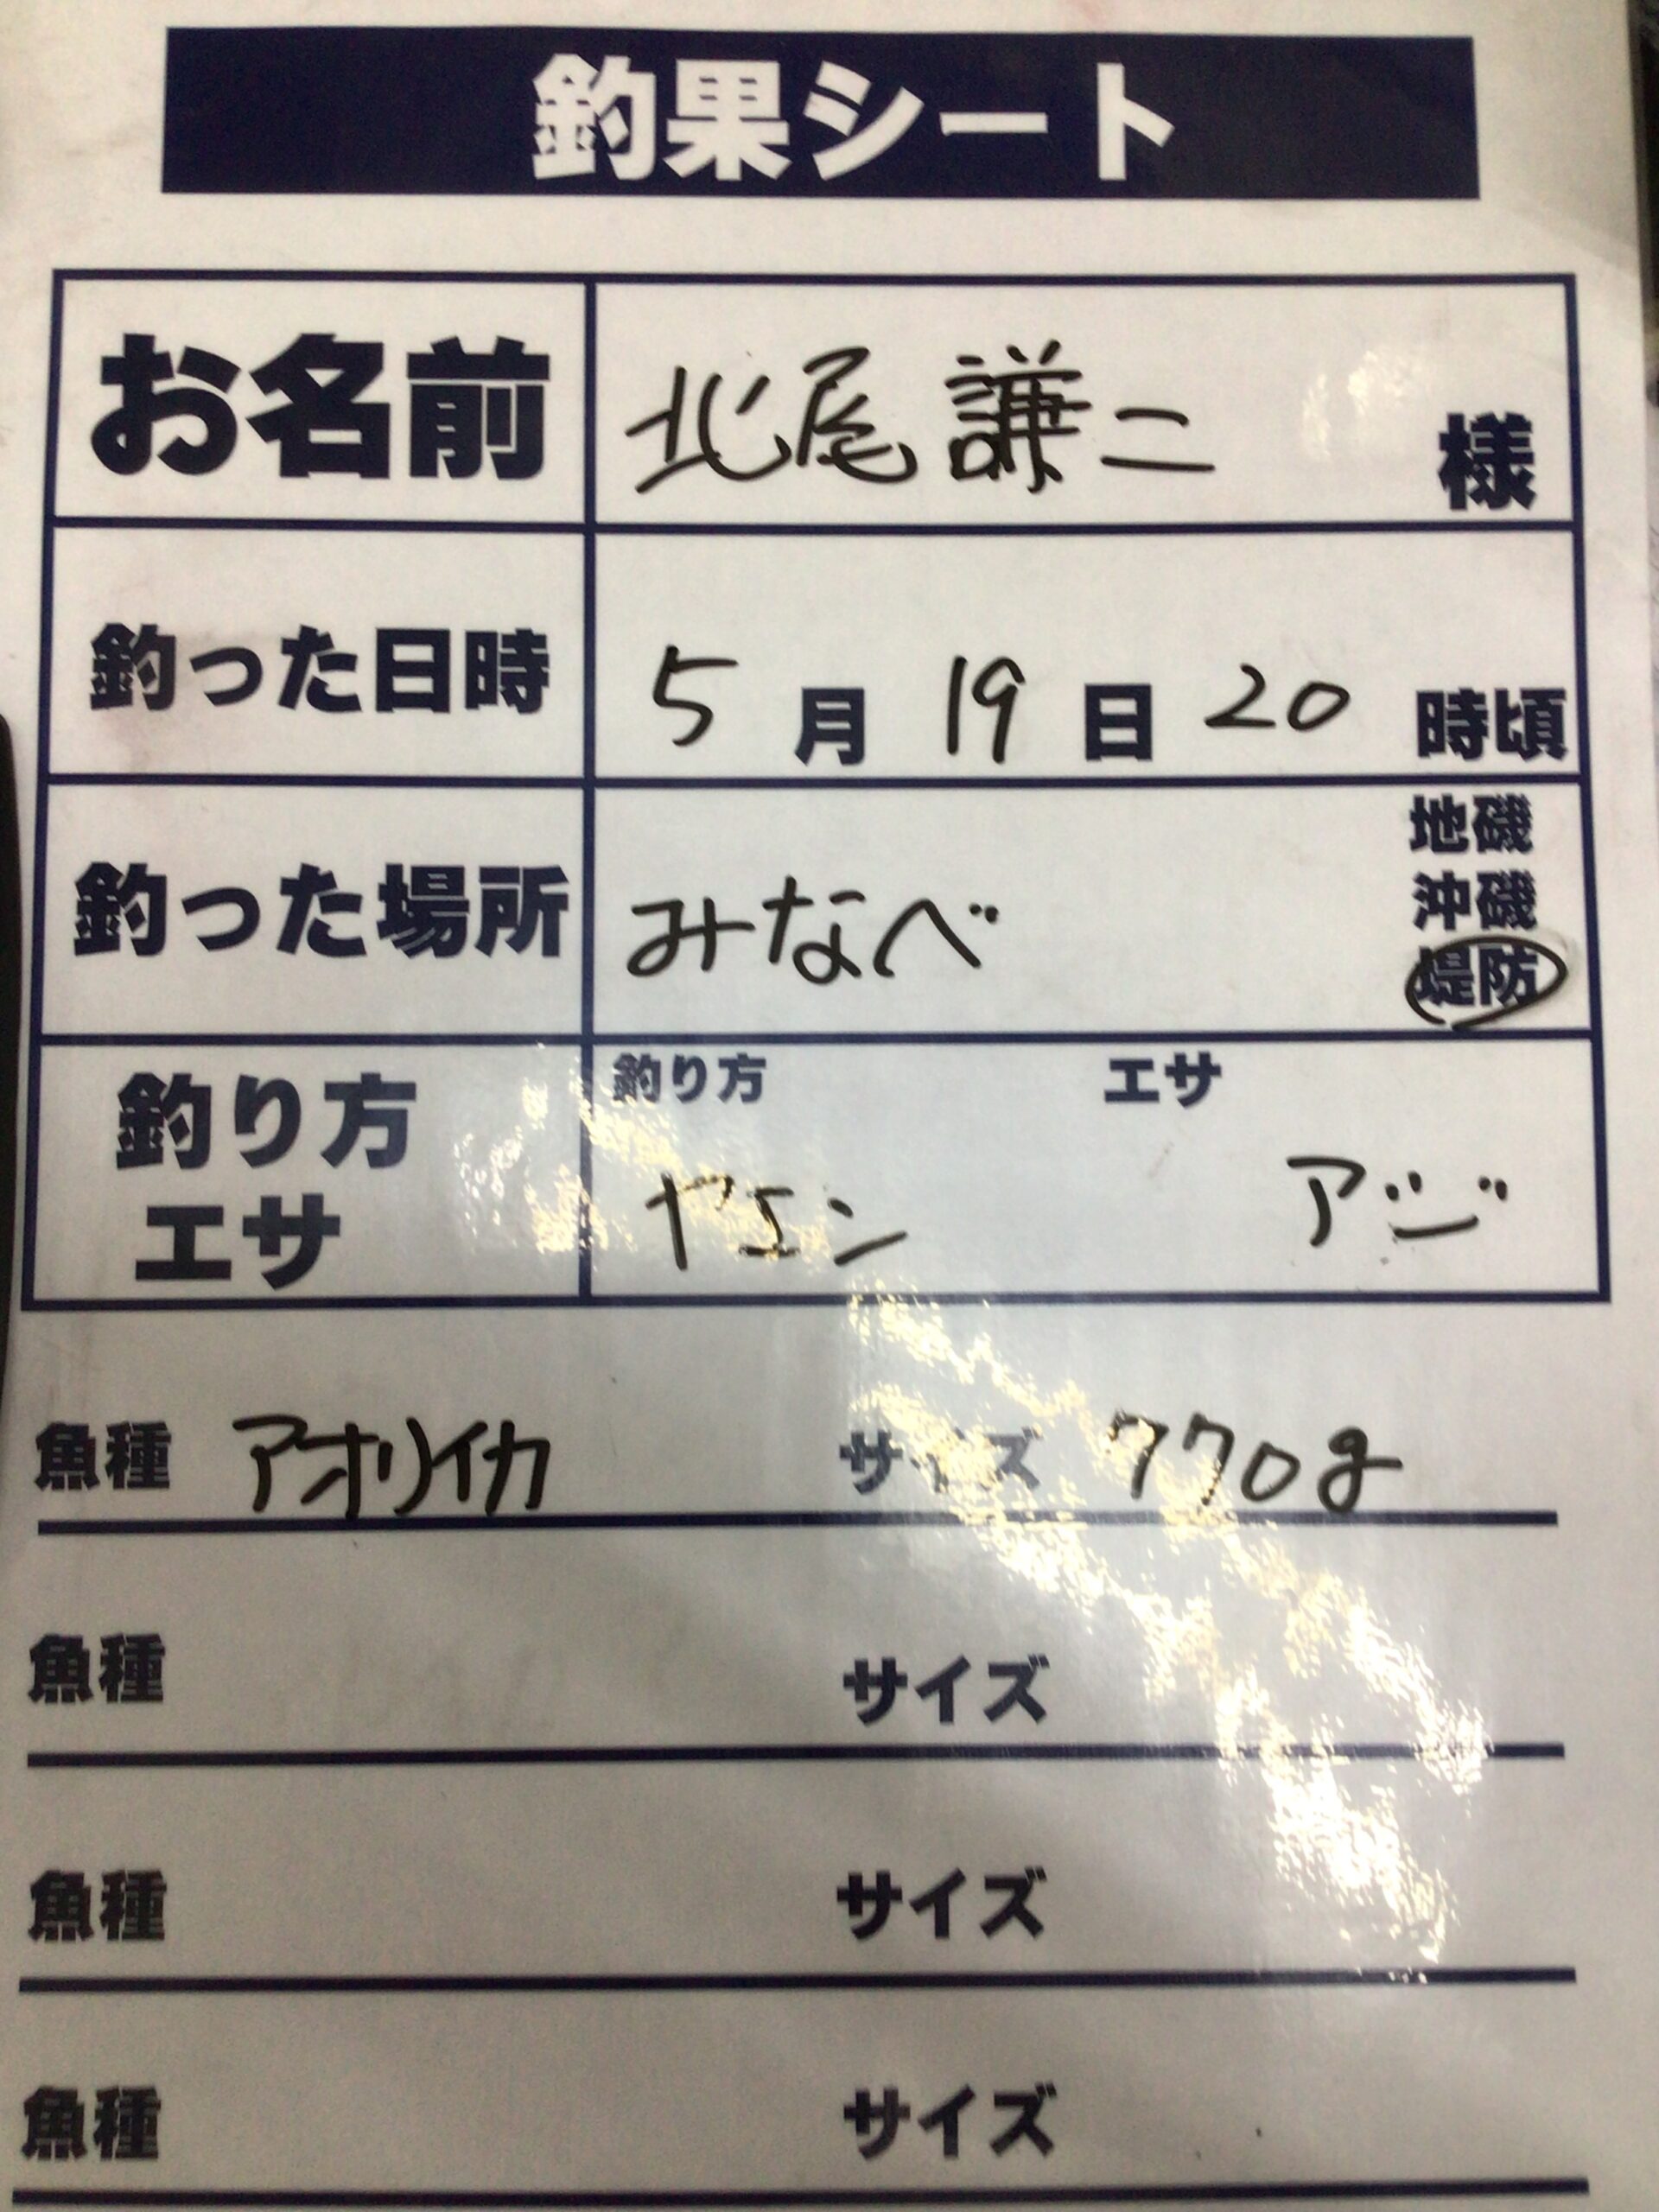 釣果シート
お名前 北尾謙二 様
釣った日時 5月19日20時頃
釣った場所 みなべ 地磯
沖磯
堤防
釣り方 エサ
釣り方 ヤエン エサ アジ
魚種 アオリイカ サイズ 770g
魚種 サイズ
魚種 サイズ
魚種 サイズ